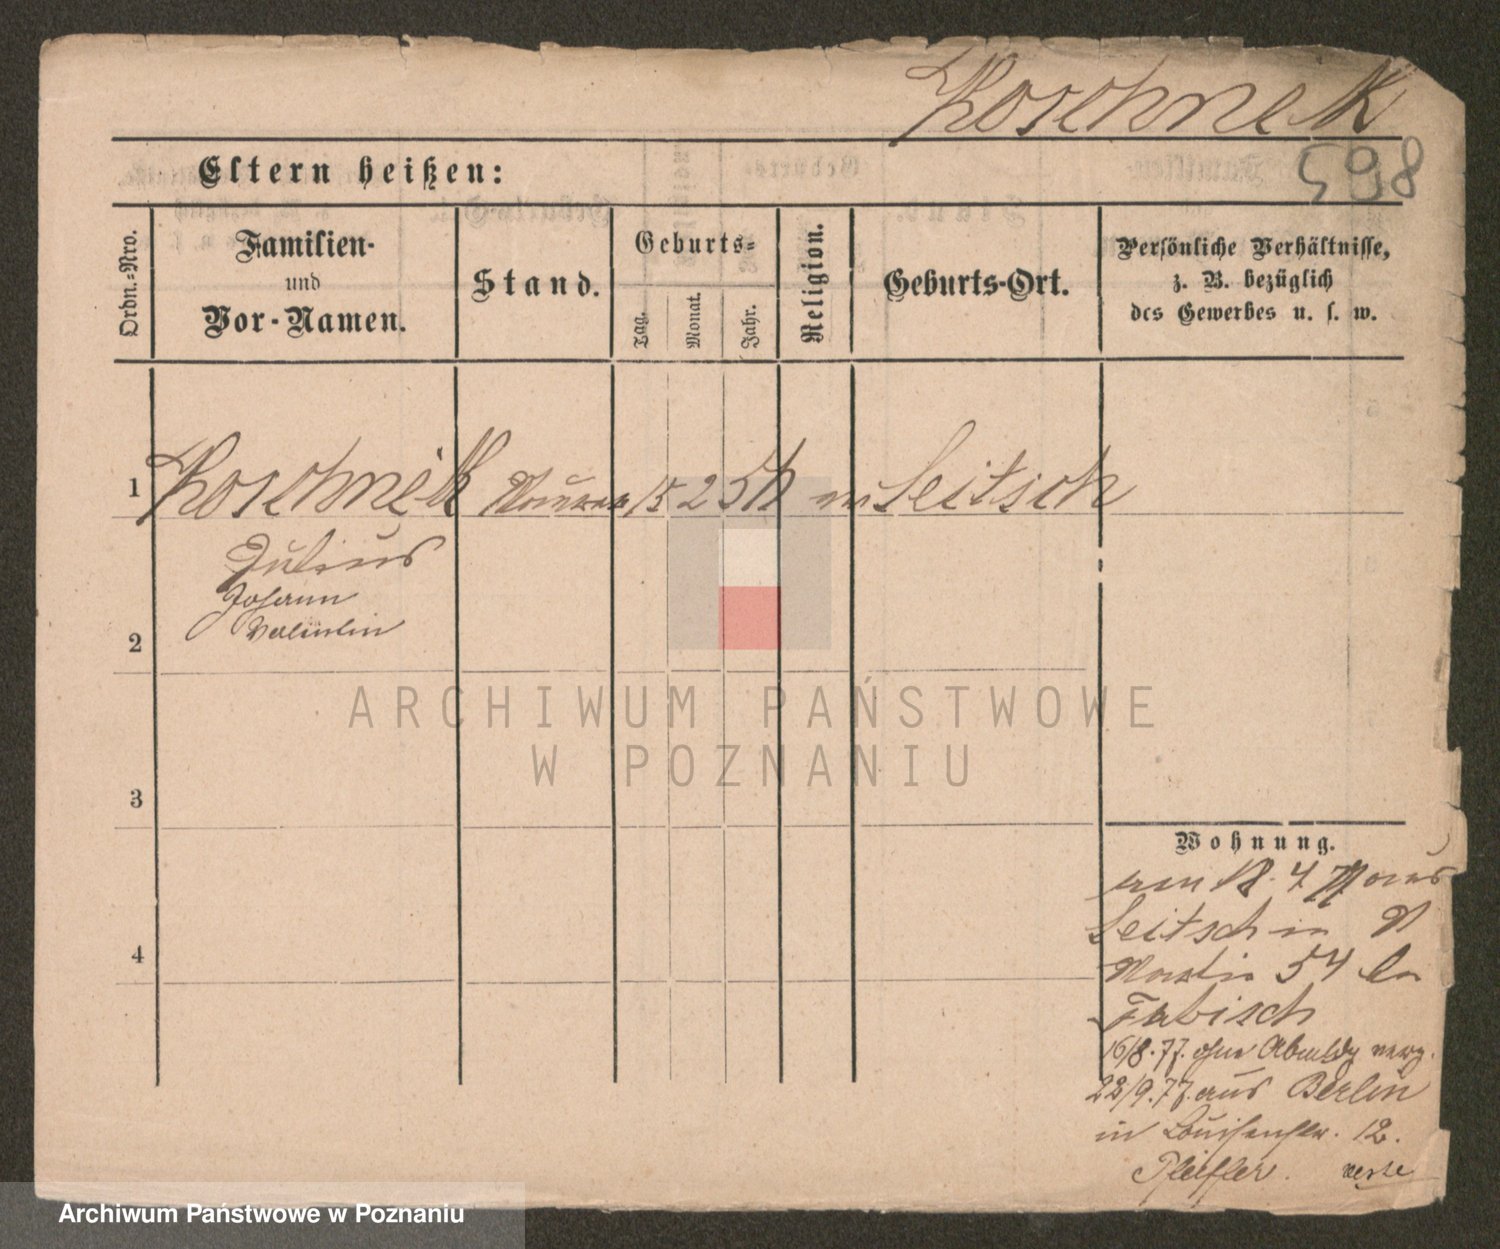 Koschnek
598
Eltern heißen:
Ordn.-Nro.
Familien-
und
Vor-Namen.
Stand.
Geburts-
Tag.
Monat.
Jahr.
Religion.
Geburts-Ort.
Persönliche Verhältnisse,
z. B. bezüglich
des Gewerbes u. s. w.
1 Koschnik Maurer 15 2 54 ev Seitsch
Julius
Johann
Valentin
2
3
4
Wohnung.
am 18. 4 77 aus
Seitsch in St
Martin 54 bei
Fabisch
16/8. 77. ohne Abmeldg verz.
22/9. 77. aus Berlin
in Louisenstr. 12.
Pfeiffer.
ARCHIWUM PAŃSTWOWE
W POZNANIU
Archiwum Państwowe w Poznaniu